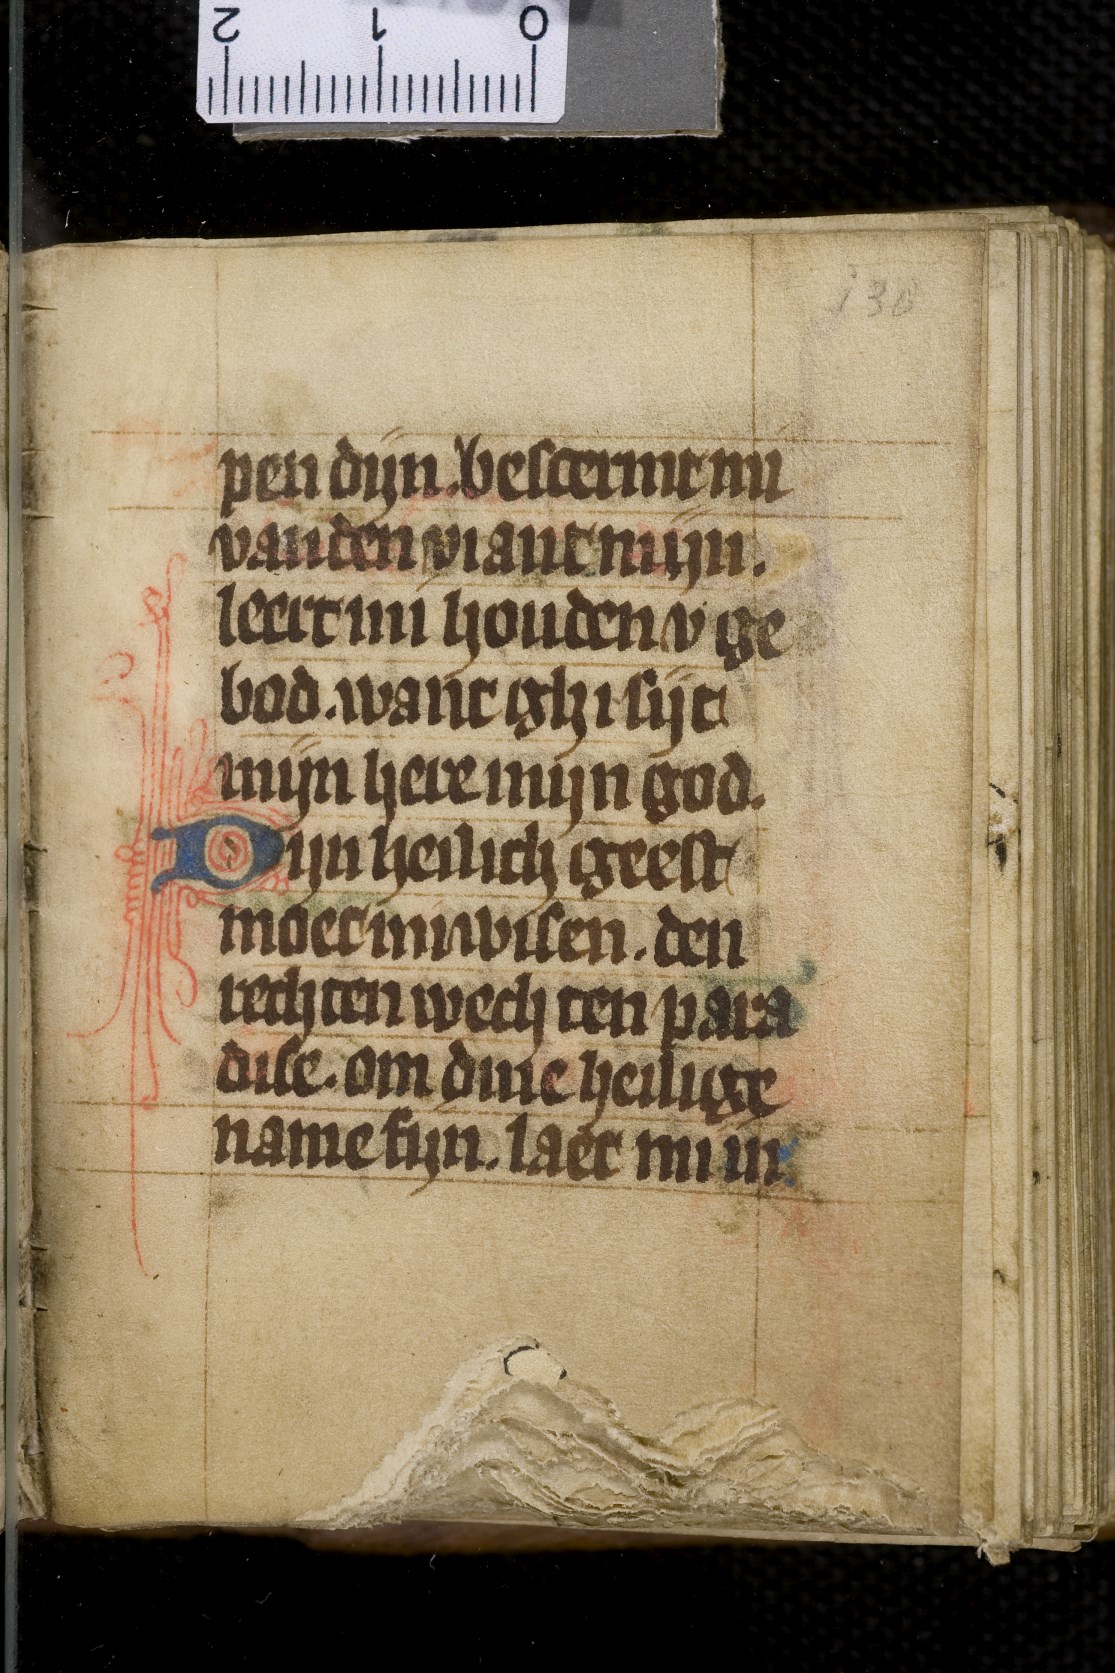 2 1 0
130
pen dijn. bescermt mi
van den viant mijn.
leert mi houden v ge
bod. want ghi sijt
mijn here mijn god.
Dijn heilich geest
moet mi wisen. den
rechten wech ten para
dise. om dine heilige
name fijn. laet mi in.